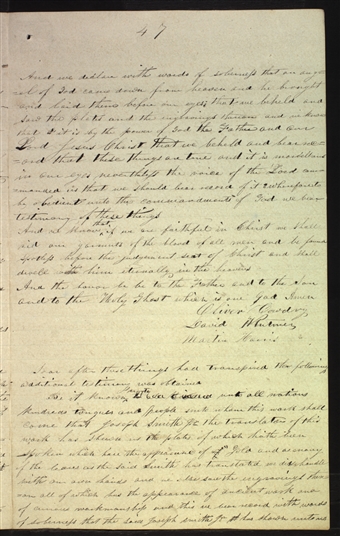 47
And we declare with words of soberness that an ang-
el of God came down from heaven and he brought
and laid them before our eyes that we beheld and
saw the plates and the engravings thereon and we know
that it is by the power of God the Father and our
Lord Jesus Christ that we beheld and bear re-
cord that these things are true and it is marvellous
in our eyes nevertheless the voice of the Lord com-
manded us that we should bear record of it wherefore to
be obedient unto the commandments of God we bear
testimony of these things
And we know that if we are faithful in Christ we shall
rid our garments of the blood of all men and be found
spotless before the judgement seat of Christ and shall
dwell with him eternally in the heavens
And the honor be to the Father and to the Son
and to the Holy Ghost which is one God Amen
Oliver Cowdry
David Whitmer
Martin Harris
Soon after these things had transpired the following
additional testimony was obtained
Be it known unto all nations
kindreds tongues and people unto whom this work shall
come that Joseph Smith Jr the translator of this
work has shewn us the plates of which hath been
spoken which have the appearance of Gold and as many
of the leaves as the said Smith has translated we did handle
with our own hands and we also saw the engravings there-
on all of which has the appearance of ancient work and
of curious workmanship and this we bear record with words
of soberness that the said Joseph Smith Jr has shewn unto us